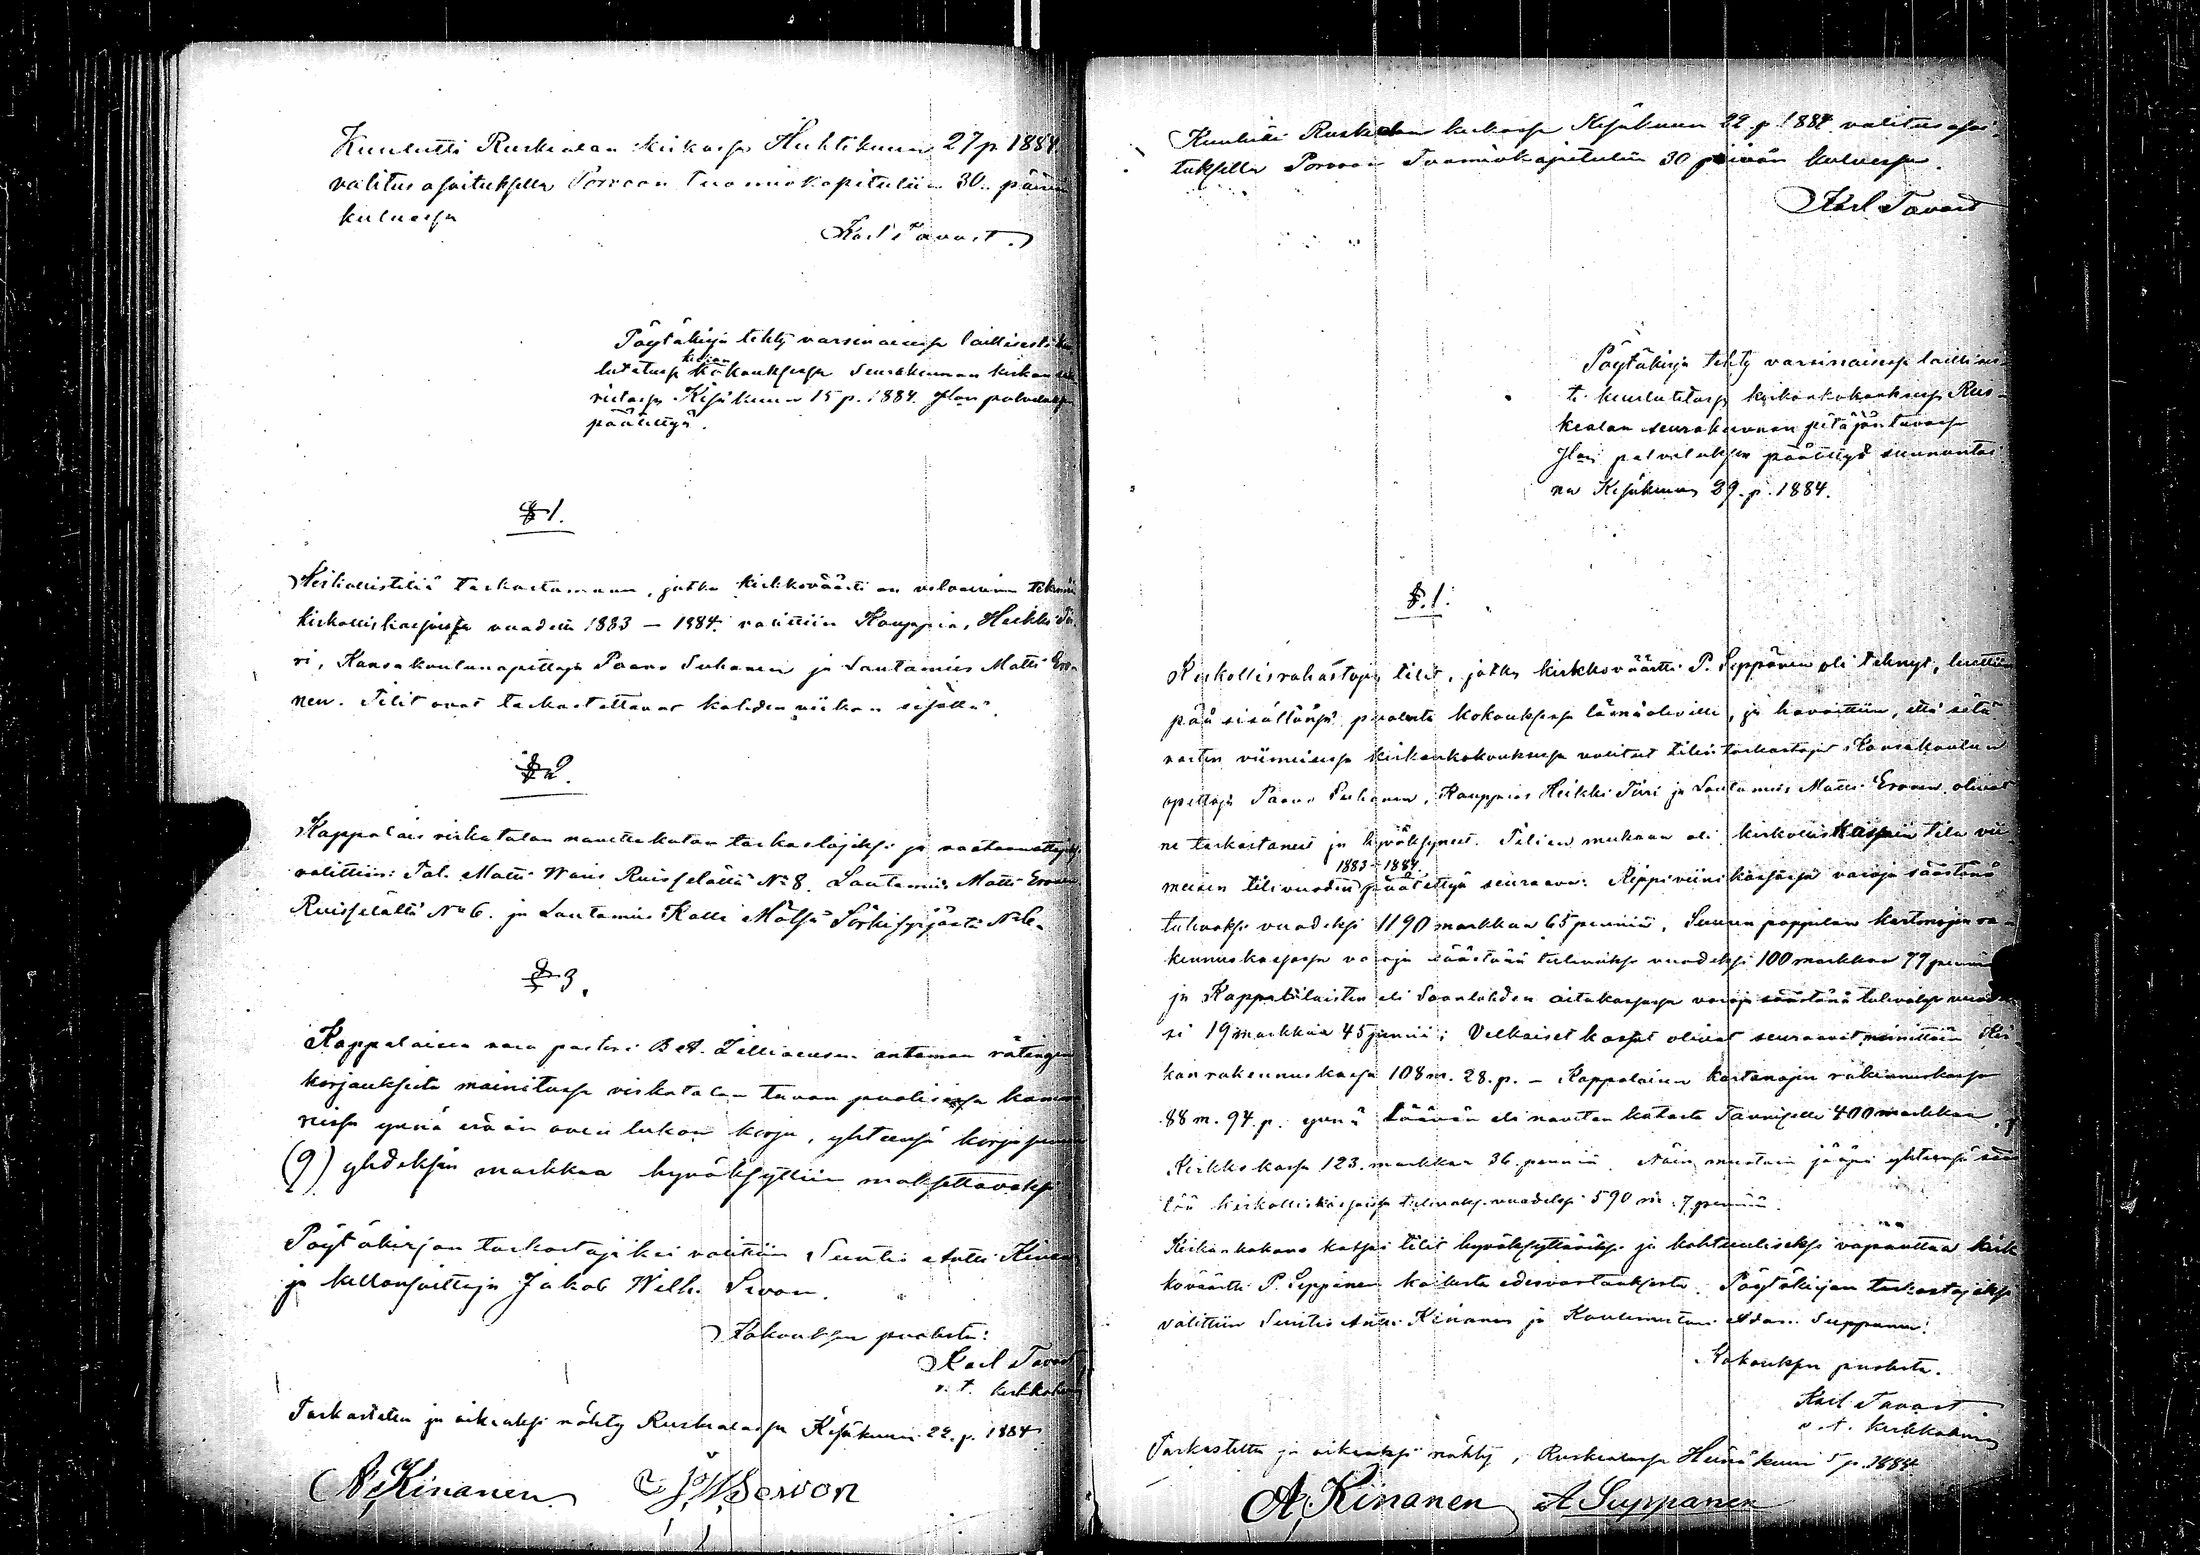 Kuulutti Ruskealan kirkossa Huhtikuun 27 p. 1884
valitus osoituksella Porvoon tuomiokapituliin 30. päivän
kuluessa
Karl Tavast.
Pöytäkirja tehty varsinaisessa laillisesti kuu
lutetussa kirkon kokouksessa Seurakunnan kirkon sak
ristiassa Kesäkuun 15 p. 1884. Jlan palveluksen
päätettyä.
§ 1.
Kirkollistiliä tarkastamaan, jotka kirkkoväärti on velvollinen tekemään
kirkolliskassoista vuodelta 1883 – 1884. valittiin Kauppias Heikki Tii
ri, Kansakoulunopettaja Paavo Suhonen ja Lautamies Matti Ero
nen. Tilit ovat tarkastettavat kahden viikon sisällä.
§ 2.
Kappalais virkatalon navettakaton tarkastajiksi ja vastaanottajiksi
valittiin: Tal. Matti Waris Ruisselältä No 8. Lautamies Matti Eronen
Ruisselältä No 6. ja Lautamies Kalle Mätsä Särkisyrjästä No 6.
§ 3.
Kappalaisen vara pastori B. A. Zilliacusen antaman rätingin
korjauksista mainitussa virkatalon tuvan puolisessa kama
rissa ynnä erään oven lukon korja, yhteensä
(9) yhdeksän markkaa hyväksyttiin maksettavaksi
Pöytäkirjan tarkastajiksi valittiin Suntio Antti Kinanen
ja kellonsoittaja Jakob Wilh. Sevon.
Kokouksen puolesta:
Karl Tavast
v. t. kirkkoherra
Tarkastettu ja oikeaksi nähty Ruskealassa Kesäkuun 22. p. 1884
A. Kinanen J. W. Sevon
Kuulutti Ruskealan kirkossa Kesäkuun 22 p. 1884 valitus osoi-
tuksella Porvoon Tuomiokapituliin 30 päivän kuluessa.
Karl Tavast
Pöytäkirja tehty varsinaisessa laillises-
ti kuulutetussa kirkonkokouksessa Rus-
kealan seurakunnan pitäjäntuvassa
Jlan palveluksen päätettyä sunnuntai
na Kesäkuun 29. p. 1884.
§. 1.
Kirkollisrahastojen tilit, jotka kirkkoväärtti P. Seppänen oli tehnyt, luettiin
pää sisältönsä puolesta kokouksessa läsnäoleville, ja havaittiin, että sitä
varten viimeisessä kirkonkokouksessa valitut tilintarkastajat Kansakoulun
opettaja Paavo Suhonen, Kauppias Heikki Tiiri ja Lautamies Matti Eronen olivat
ne tarkastaneet ja hyväksyneet. Tilien mukaan oli kirkolliskassain tila vii
meisen tilivuoden 1883–1884 päätettyä seuraava: Rippiviinikassassa varoja säästönä
tulevaksi vuodeksi 1190 markkaa 65 penniä, Suuren pappilan kartanojen ra
kennuskassassa varoja säästönä tulevaksi vuodeksi 100 markkaa 77 penniä
ja Kappelilaisten eli Soanlahden aitakassassa varoja säästönä tulevaksi vuodek
si 19 markkaa 45 penniä; Velkaiset kassat olivat seuraavat nimittäin Kir
kon rakennuskassa 108 m. 28. p. – Kappalaisen kartanojen rakennuskassa
88 m. 94. p. ynnä Läävän eli navetan katosta Tanniselle 400 markkaa, ja
Kirkkokassa 123. markkaa 36. penniä. Näin muotoin jääpi yhteensä sääs
töä kirkolliskassoissa tulevaksi vuodeksi 590 m. 7. penniä.
Kirkonkokous katsoi tilit hyväksyttäviksi ja kohtuulliseksi vapauttaa kirk
koväärtti P. Seppänen kaikesta edesvastauksesta. Pöytäkirjan tarkastajiksi
valittiin Suntio Antti Kinanen ja Koulumestari Adam Suppanen.
Kokouksen puolesta.
Karl Tavast
v. t. kirkkoherra
Tarkastettu ja oikeaksi nähty, Ruskealassa Heinäkuun 5 p. 1884
A. Kinanen A. Suppanen